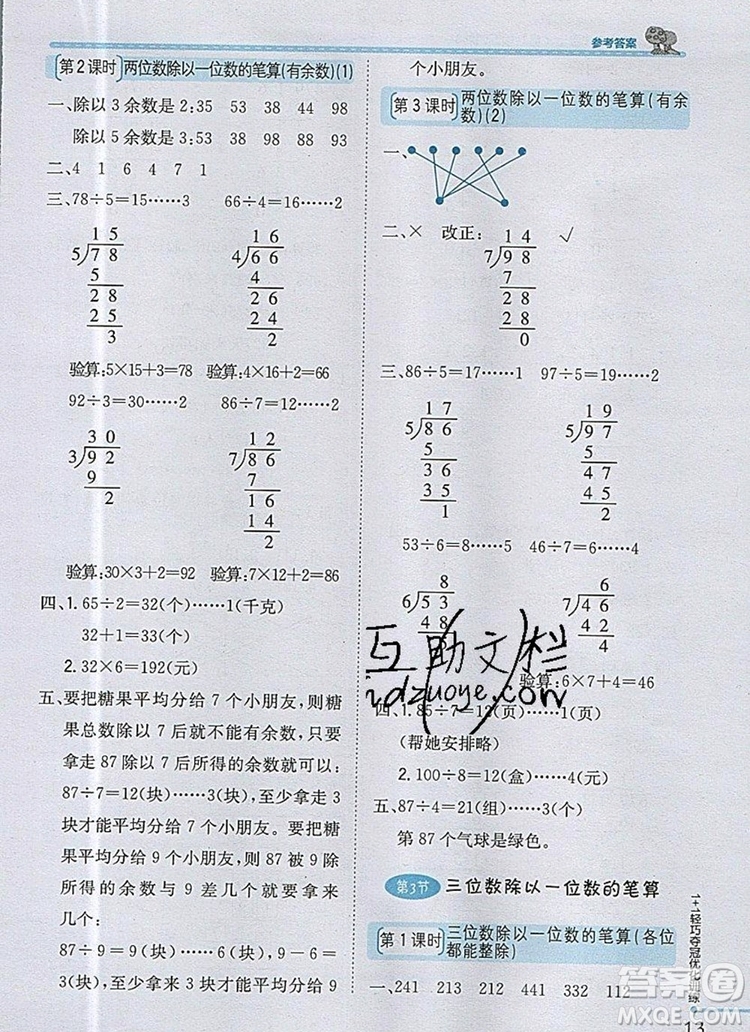 参考答案
第2课时 两位数除以一位数的笔算(有余数)(1)
一、除以 3 余数是 2:35 53 38 44 98
除以 5 余数是 3:53 38 98 88 93
二、4 1 6 4 7 1
三、78÷5=15……3 66÷4=16……2
1 5
5 7 8
5
2 8
2 5
3
1 6
4 6 6
4
2 6
2 4
2
验算:5×15+3=78 验算:4×16+2=66
92÷3=30……2 86÷7=12……2
3 0
3 9 2
9
2
1 2
7 8 6
7
1 6
1 4
2
验算:30×3+2=92 验算:7×12+2=86
四、1. 65÷2=32(个)……1(千克)
32+1=33(个)
2. 32×6=192(元)
五、要把糖果平均分给 7 个小朋友，则糖
果总数除以 7 后就不能有余数；只要
拿走 87 除以 7 后所得的余数即可。
87÷7=12(块)……3(块)，至少拿走 3
块才能平均分给 7 个小朋友。要把糖
果平均分给 9 个小朋友，87 被 9 除所
得的余数与 9 差几就是至少再拿来
几个:
87÷9=9(块)……6(块)，9-6=
3(块)，至少拿来 3 块才能平均分给 9
个小朋友。
第3课时 两位数除以一位数的笔算(有余
数)(2)
一、
二、× 改正: √
1 4
7 9 8
7
2 8
2 8
0
三、86÷5=17……1 97÷5=19……2
1 7
5 8 6
5
3 6
3 5
1
1 9
5 9 7
5
4 7
4 5
2
53÷6=8……5 46÷7=6……4
8
6 5 3
4 8
6
7 4 6
4 2
4
验算:6×7+4=46
四、1. 85÷7=12(页)……1(页)
(帮她安排略)
2. 100÷8=12(盒)……4(元)
五、87÷4=21(组)……3(个)
第 87 个气球是绿色。
第3节 三位数除以一位数的笔算
第1课时 三位数除以一位数的笔算(各位
都能整除)
一、241 213 212 441 332 112
1+1轻巧夺冠优化训练
13
互助文栏
idzuoye.com
答案圈
MXQE.COM